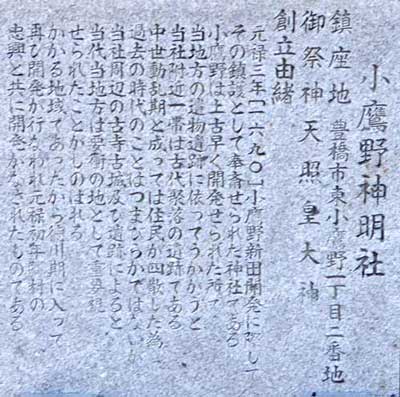 小鷹野神明社
鎮座地　豊橋市東小鷹野一丁目二番地
御祭神　天照皇大神
創立由緒
元禄三年［一六九〇］小鷹野新田開発に際して
その鎮護として奉斎せられた神社である
小鷹野は上古早く開発せられた所で
当地方の遺物遺跡に依ってうかがうと
当社附近一帯は古代聚落の遺跡である
中世動乱期と成っては住民が四散した為
過去の時代のことはつまびらかではないが
当社周辺の古寺古城及び遺跡によると
当代当地方は要衝の地として重要視
せられたことがしのばれる
かかる地域であったから徳川期に入って
再び開発が行なわれ元禄初年 村の
忠興と共に開発がなされたものである